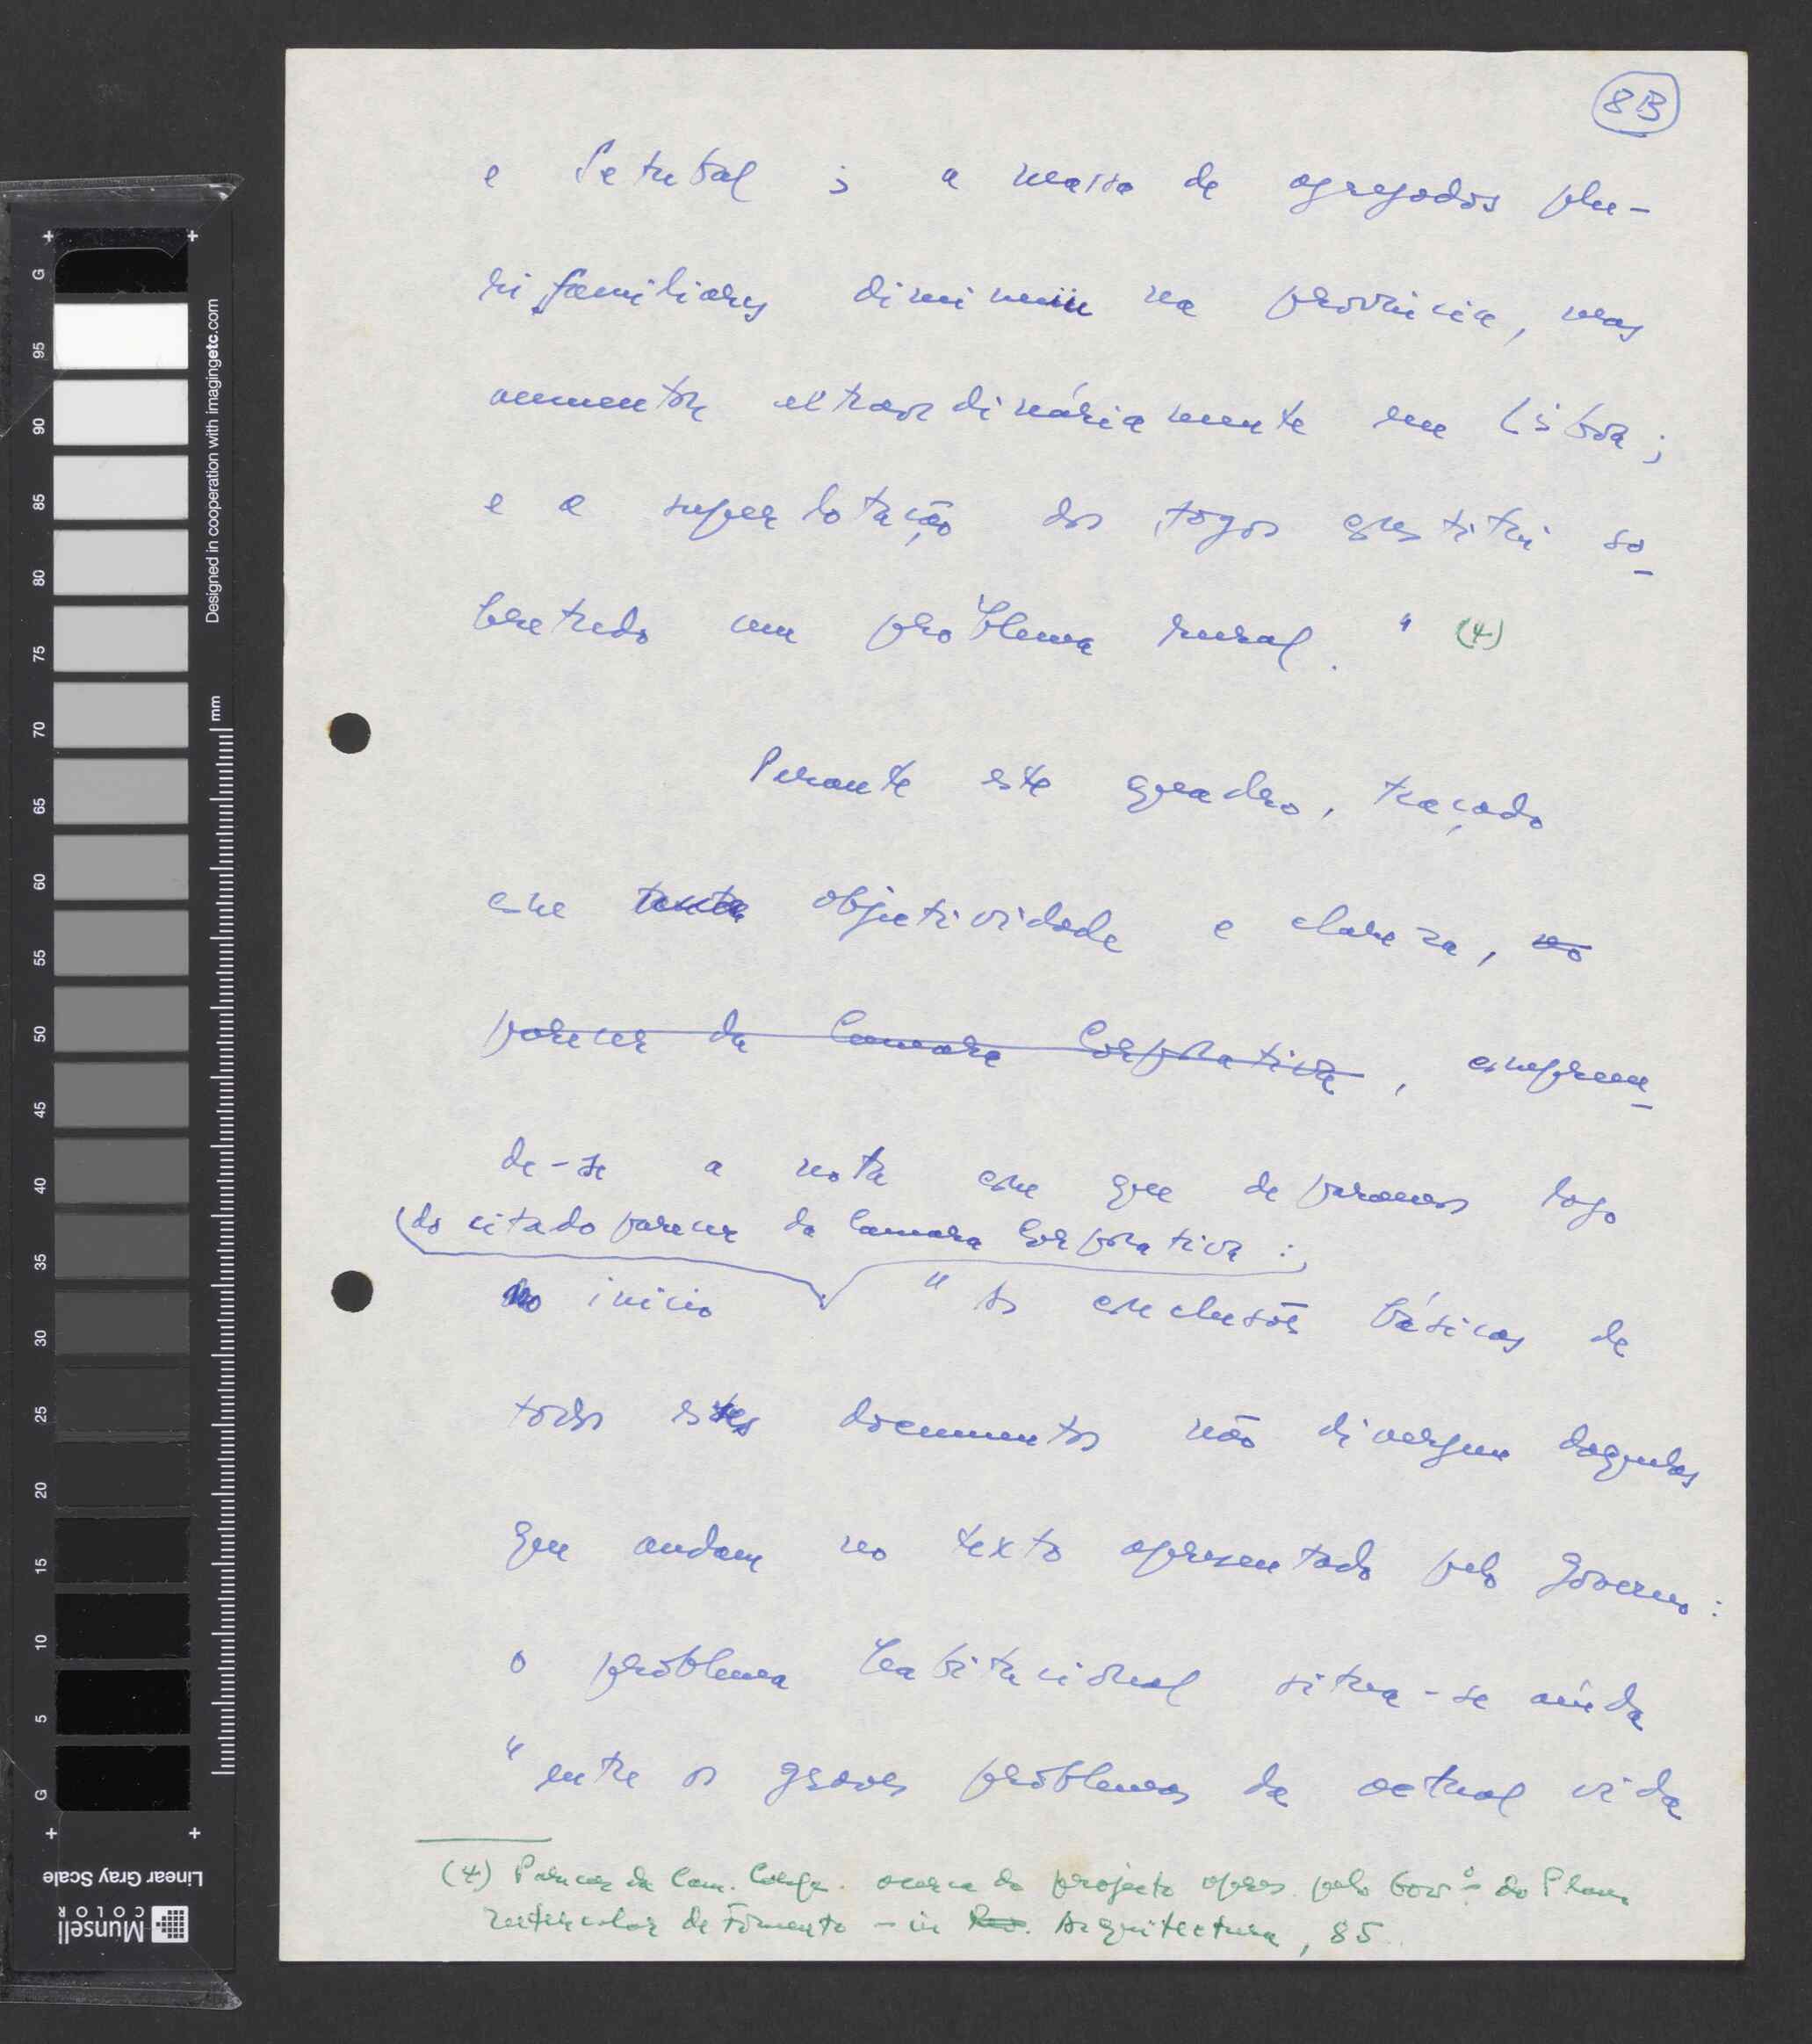 8B
e Setubal ; a massa de agregados plu-
rifamiliares diminuiu na província, mas
aumentou extraordináriamente em Lisboa ;
e a superlotação dos fogos constitui so-
bretudo um problema rural. " (4)
Perante este quadro, traçado
com tanta objectividade e clareza, no
parecer da Camara Corporativa , compreen-
de-se a nota com que deparamos logo
(do citado parecer da Camara Corporativa :
no inicio " As conclusões básicas de
todos estes documentos não divergem daquelas
que andam no texto apresentado pelo Governo :
o problema habitacional situa-se ainda
" entre os graves problemas da actual vida
(4) Parecer da Cam. Corp. acerca do projecto apres. pelo Govº do Plano
Intercalar de Fomento - in Rev. Arquitectura, 85
G 95 90 85 80 75 70 65 60 55 50 45 40 35 30 25 20 15 10 5 G
Designed in cooperation with imagingetc.com
mm
Linear Gray Scale
Munsell
COLOR